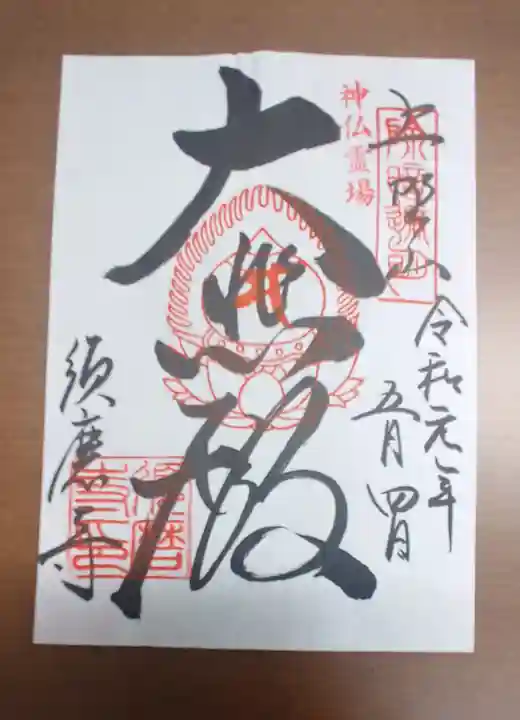 上野山
令和元年
五月四日
神仏霊場
大悲殿
須磨寺